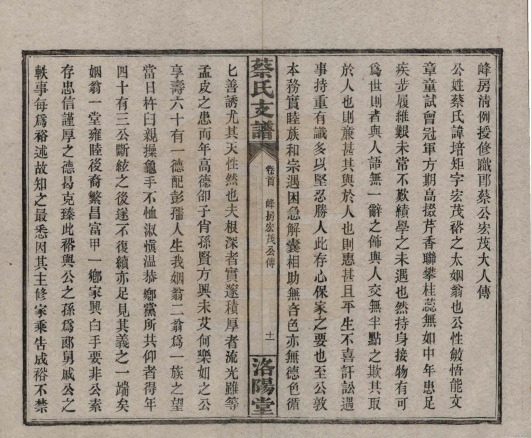 峰房淸例授修職郎蔡公宏茂大人傳
公姓蔡氏諱培矩字宏茂裕之太姻翁也公性敏悟能文
章童試曾冠軍方期高掇芹香聯攀桂蕊無如中年患足
疾步履維艱未常不歎績學之未遇也然持身接物有可
爲世則者與人語無一辭之飾與人交無半點之欺其取
於人也則廉甚其與於人也則惠甚且平生不喜訐訟遇
事持重有識多以堅忍勝人此存心保家之要也至公敦
本務實睦族和宗遇困急解囊相助無吝色亦無德色循
蔡氏支譜
卷首
峰房宏茂公傳
十一
洛陽堂
匕善誘尤其天性然也夫根深者實遂積厚者流光雖等
孟皮之患而年高德卲子肯孫賢方興未艾何樂如之公
享壽六十有一德配彭孺人生我姻翁二翁爲一族之望
當日杵臼親操龜手不恤淑愼溫恭鄉黨所共仰者得年
四十有三公斷絃之後遂不復續亦足見其義之一端矣
姻翁一堂雍睦後裔繁昌富甲一鄉家興白手要非公素
存忠信謹厚之德曷克臻此裕與公之孫爲郎舅戚公之
軼事每爲裕述故知之最悉因其主修家乘告成裕不禁